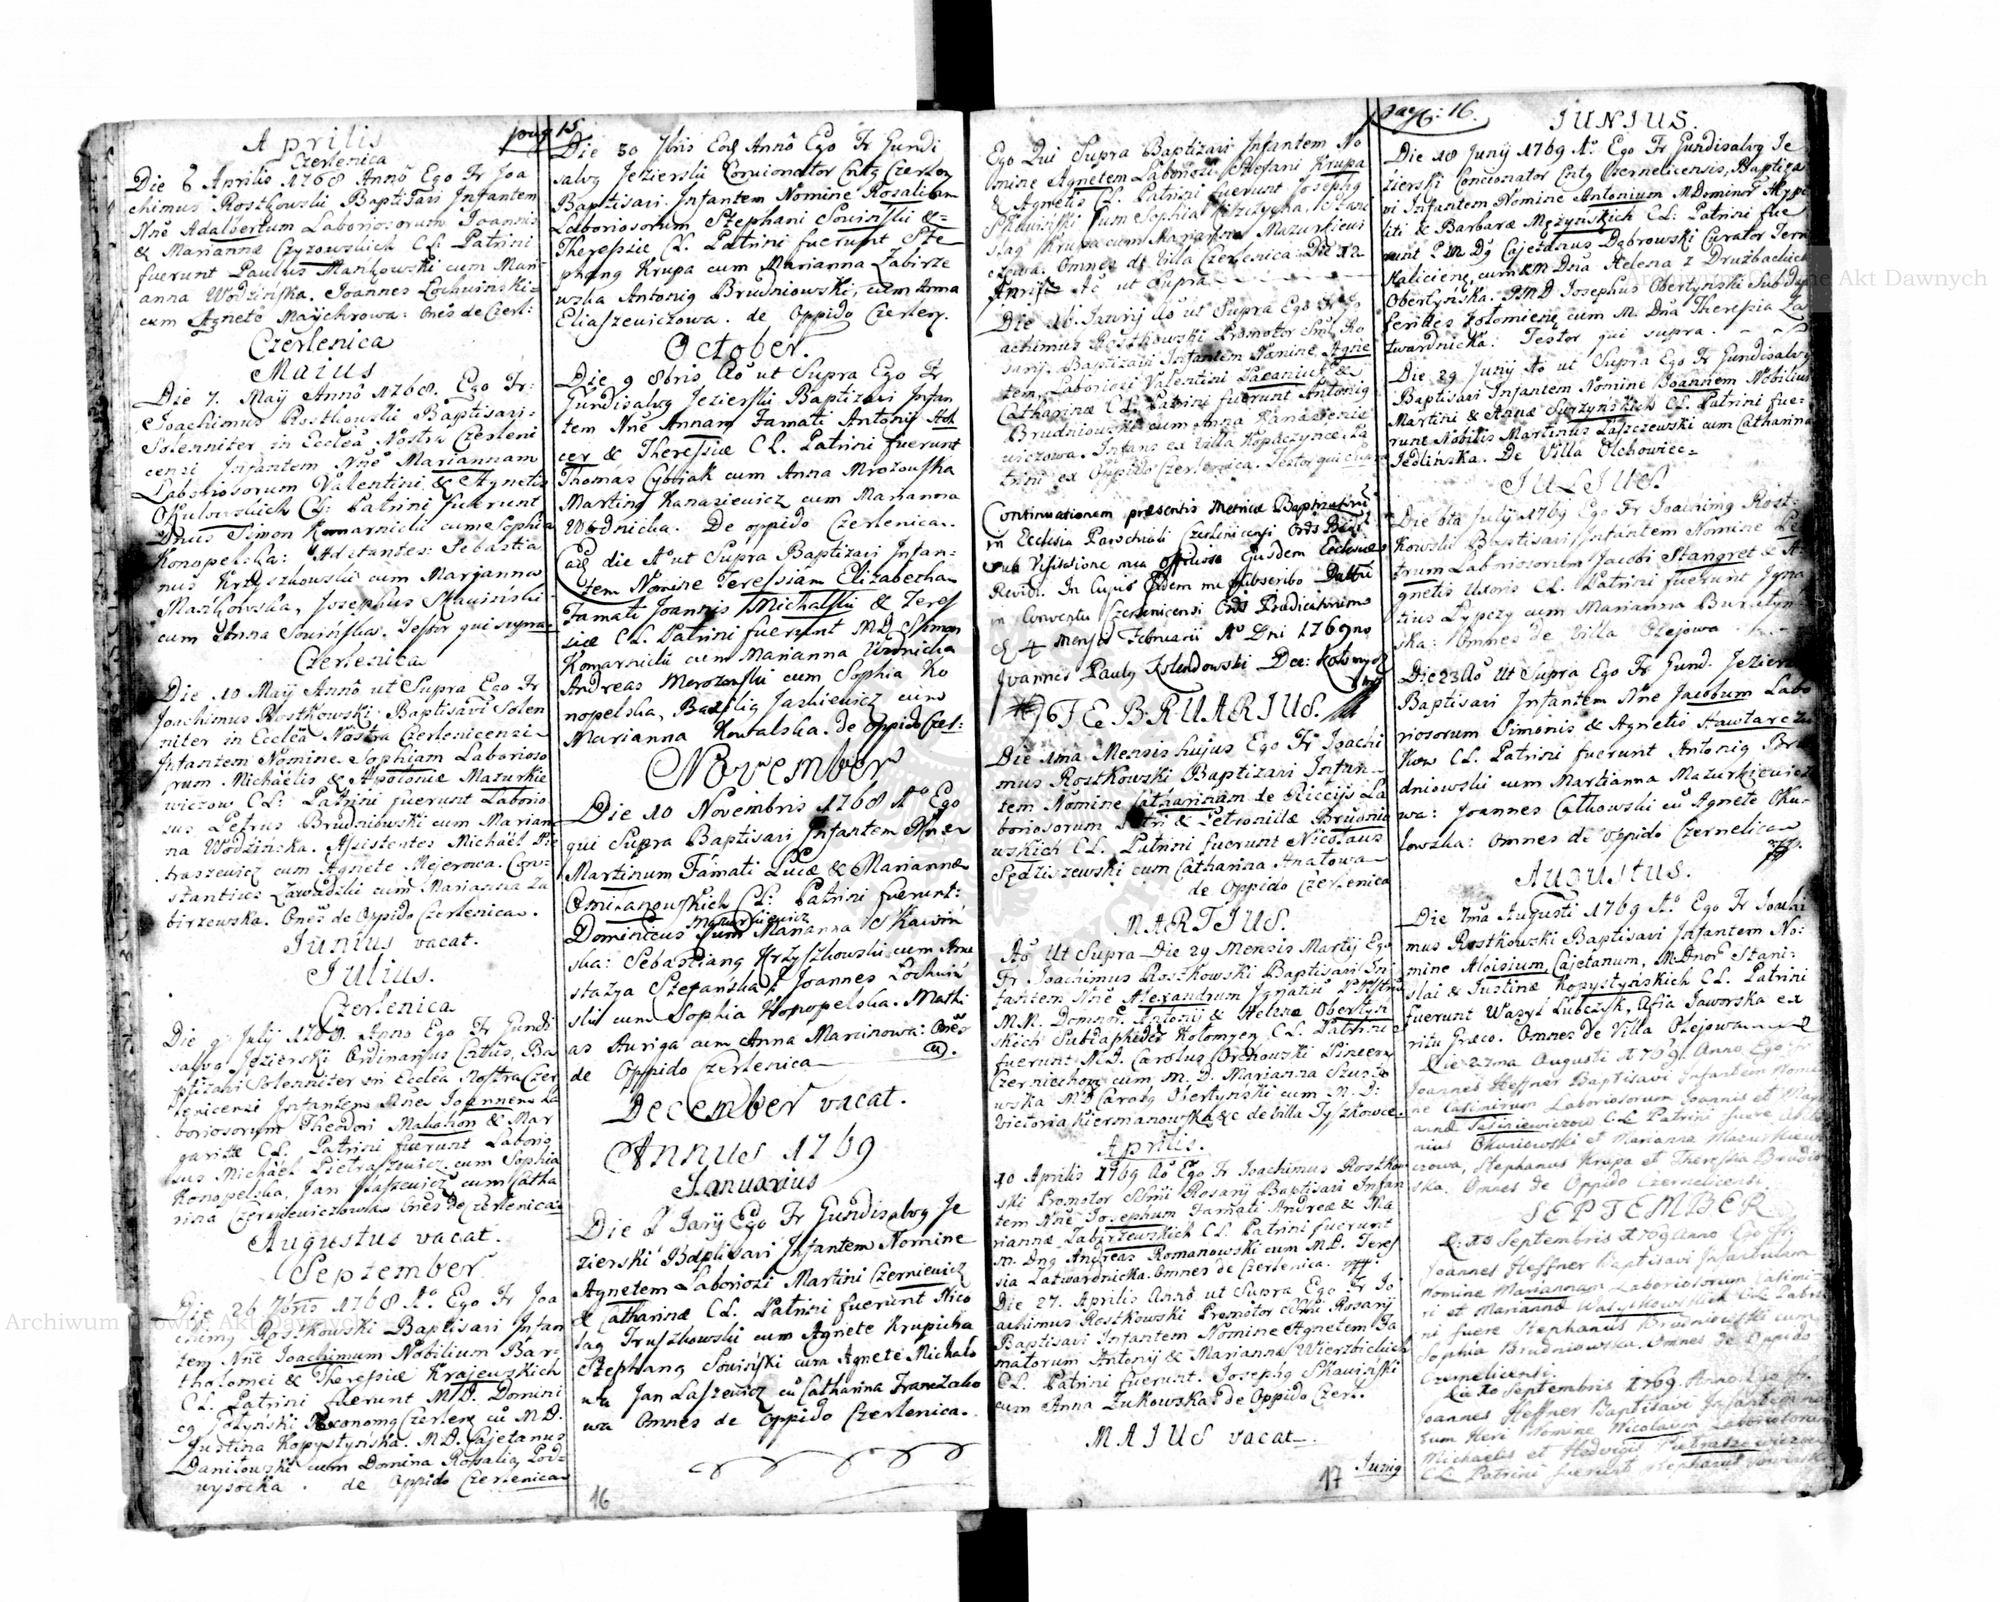 pag 15
Aprilis
Czerlenica
Die 6 Aprilis 1768 Annô Ego Fr Joa
chimus Rostkowski BaptiSavi Infantem
Nñe Adalbertum Laboriosorum Joannis
& Mariannæ Czyzowskich CL: Patrini
fuerunt Paulus Mańkowski cum Mari
anna Wodzińska. Joannes Lochwinski=
cum Agnetê Maychrowa: Onẽs de Czerl:
Czerlenica
Maius
Die 7. Maÿ Annô 1768. Ego Fr:
Joachimus Rostkowski Baptisavi=
Solenniter in Eccleâ Nostra Czerleni
censi Infantem Nñe Mariannam
Laboriosorum Valentini & Agnetis
Okulowskich CL: Patrini fuerunt
Dnus Simon Komarnicki cum Sophia
Konopelska: Adstantes: Sebastia
nus Krzyszkowski cum Marianna
Mańkowska, Josephus Skawiński
cum Anna Sowińska. Testor qui supra
Czerlenica
Die 10 Maÿ Annô ut Supra Ego Fr
Joachimus Rostkowski Baptisavi Solen
niter in Eccleâ Nostra Czerlenicensi
Infantem Nomine Sophiam Laborioso
rum Michaëlis & Apoloniæ Mazurkie
wiczow CL: Patrini fuerunt Laborio
sus Petrus Brudniowski cum Marian
na Wodzińska. Assistentes Michaël Pie
traszewicz cum Agnete Mejerowa. Con=
stantius Zawadzki cum Marianna Za
birzewska. Onẽs de Oppido Czerlenica.
Junius vacat.
Julius.
Czerlenica
Die 9 Julÿ 1768. Anno Ego Fr Gundi
salvo Jezierskj Ordinarius Cntus, Ba
ptizavi Solenniter in Eccleâ Nostra Czer
lenicensi Infantem Nñe Joannem La
boriosorum Theodori Malakion & Mar
garitæ CL. Patrini fuerunt Laborio
sus Michaël Pietraszewicz cum Sophia
Konopelska, Jan Laszewicz cum Catha
rina Czerniewiczowa Onẽs de Czerlenica
Augustus vacat.
September
Die 26 7bris 1768 Aº. Ego Fr Joa
chimg Rostkowski Baptisavi Infan
tem Nñe Joachimum Nobilium Bar=
tholomei & Theressiæ Krajewskich
CL. Patrini fuerunt M.D. Domini
cg Œconomg Czerlen cũ M.D.
Justina Kopystyńska. M.D. Cajetanus
Daniłowski cum Domina Rosalia Pod=
wysocka. de Oppido Czerlenica
Die 30 7bris Eod Annô Ego Fr Gundi
salvg Jezierski Concionator Cntg Czerlen
Baptisavi Infantem Nomine Rosaliam
Laboriosorum Stephani Sowiński &=
Theressiæ CL. Patrini fuerunt Ste
phang Krupa cum Marianna Zabirze
wska Antonig Brudniowski, cum Anna
Eliaszewiczowa. de Oppido Czerlen.
October.
Die 9 8bris Aõ ut Supra Ego Fr
Gundisalvg Jezierski Baptizavi Infan
tem Nñe Annam Famati Antonij
& Theressiæ CL. Patrini fuerunt
Thomas Cybiak cum Anna Mrozowska
Marting Kanasiewicz cum Marianna
Wodnicka. De oppido Czerlenica.
Ead die Aº ut Supra Baptizavi Infan=
tem Nomine Teressiam Elizabetham
Famati Joannis Michalski & Teres
siæ CL. Patrini fuerunt M.D. Simon
Komarnicki cum Marianna Wodnicka
Andreas Mrozowski cum Sophia Ko
nopelska, Bazilig Jaskiewicz cum
Marianna Kowalska. de Oppido Czel:
November
Die 10 Novembris 1768 Aº Ego
qui Supra Baptisavi Infantem Nñe
Martinum Famati Lucæ & Mariannæ
CL: Patrini fuerunt:
Dominicus Mazurkiewicz cum Marianna Skawiń
ska: Sebastiang Krzyszkowski cum Ana
stazya Stefańska: Joannes Lochwiń
ski cum Sophia Konopelska. Mathi
as Auriga cum Anna Marcinowa: Onẽs
de Oppido Czerlenica
December vacat.
Annus 1769
Januarius
Die Jarÿ Ego Fr Gundisalvg Je
zierski Baptisavi Infantem Nomine
Agnetem Laboriosi Martini Czerniewicz
& Catharinæ CL. Patrini fuerunt Nico
lag Truszkowski cum Agnete Krupicha
Stephang Sowiński cum Agnete Michalo
wa Jan Laszewicz cũ Catharina Franczako
wa Omnes de Oppido Czerlenica.
16
pag: 16.
Ego Qui Supra Baptizavi Infantem No
mine Agnetem Laboriosi Stefani Krupa
& Agnetis CL. Patrini fuerunt Josephg
Skawiński cum Sophia
slag Krupa cum Marianna Mazurkiewi
czowa. Omnes de Villa Czerlenica Die 12
Aprilis Aõ ut Supra
Die 16. Januÿ Aõ ut Supra Ego Fr Jo
achimus Rostkowski Promotor Smi Ro
sarÿ. Baptizavi Infantem Nomine Agne
tem, Laboriosi Valentini &
Catharinæ CL. Patrini fuerunt Antonig
Brudniowski cum Anna Kanasiewi
czowa. Infans ex Villa Kopaczynce. Pa
trini ex Oppido Czerlenica. Testor qui supra
Continuationem præsentis Metricæ Baptisatorum
in Ecclesia Parochiali Czerlenicensi Ords Præd.
sub Visitatione mea Ejusdem Ecclesiæ
Revidi. In cujus Fidem me subscribo Dattũ
in Conventu Czerlenicensi Ords Prædicatorum
d 4 Mensis Februarii Aº Dni 1769no
Joannes Paulg Dec: Kołomy
FEBRUARIUS.
Die 1ma Mensis hujus Ego Fr Joachi
mus Rostkowski Baptizavi Infan=
tem Nomine Catharinam de Ricciis La
boriosorum Petri & Petronilæ Brudnio
wskich CL. Patrini fuerunt Nicolaus
Sędziszewski cum Catharina Anatowa
de Oppido Czerlenica
MARTIUS.
Aõ Ut Supra Die 29 Mensis Martÿ Ego
Fr Joachimus Rostkowski Baptisavi In
fantem Nñe Alexandrum Ignatiũ
M.M. Domnor. Antonij & Helenæ Obertyn
skich Subdaphedor Kolomyen CL. Patrini
fuerunt M.D. Carolus Orchowski Pincern
Czerniechov cum M. D. Marianna
wska M D Carolg Obertyński cum M. D:
Victoria Kiermanowska &c de villa Tyszkowce.
Aprilis.
10 Aprilis 1769 Aõ Ego Fr Joachimus Rostkow
ski Promotor Smi Rosarÿ Baptisavi Infan
tem Nñe Josephum Famati Andreæ & Ma
riannæ Zabirzewskich CL. Patrini fuerunt
M. Dng Andreas Romanowski cum M.D. Teres
sia Latwardnicka. Omnes de Czerlenica.
Die 27. Aprilis Annô ut Supra Ego Fr Jo
achimus Rostkowski Promotor Smi Rosarÿ
Baptisavi Infantem Nomine Agnetem Fa
matorum Antonij & Mariannæ Wierzbickich
CL. Patrini fuerunt: Josephg Skawiński
cum Anna Zukowska de Oppido Czer.
MAIUS vacat.
17
Junig
JUNIUS.
Die 18 Junÿ 1769 Aº. Ego Fr Gundisalvg Je
zierski Concionator Cntg Czernelicensis, Baptiza
vi Infantem Nomine Antonium MDominor Hypo
liti & Barbaræ Męzyńskich CL: Patrini fue
runt P.M Dg Cajetanus Dąbrowski Curator Terræ
Haliciens, cum M Dna Helena z Druzbackich
Obertyńska. PMD Josephus Obertyński Subdap
ferides Kolomiens cum M. Dna Theressia La
twardnicka. Testor qui supra.
Die 29 Junÿ Aõ ut Supra Ego Fr Gundisalvg
Baptisavi Infantem Nomine Joannem Nobilium
Martini & Annæ Surzyńskich CL. Patrini fue=
runt Nobilis Martinus Laszczewski cum Catharina
Jedlińska. De Villa Olchowiec=
JULIUS.
Die 6ta Julÿ 1769 Ego Fr Joachimg Rost=
kowski Baptisavi Infantem Nomine Pe
trum Laboriosorum Jacobi Stangret & A
gnetis Uxoris CL. Patrini fuerunt Igna
tius Lypczy cum Marianna Buratyn
ska: Omnes de Villa Olejowa.
Die 23 Aõ Ut Supra Ego Fr Gund. Jeziers
Baptisavi Infantem Nñe Jacobum Labo
riosorum Simonis & Agnetis
kow CL. Patrini fuerunt Antonig Bru
dniowski cum Marianna Mazurkiewicz
wa: Joannes Catkowski cũ Agnete Oku=
lowska: Omnes de Oppido Czernelica
Augustus.
Die 7ma Augusti 1769 Aº. Ego Fr Joachi
mus Rostkowski Baptisavi Infantem No=
mine Aloisium, Cajetanum, MDnor Stani=
slai & Justinæ Kopystyńskich CL. Patrini
fuerunt Wasyl Lubczyk, Asia Jaworska ex
ritu Græco. Omnes de Villa Olejowa
Die 27ma Augusti 1769. Anno Ego Fr
Joannes Heffner Baptisavi Infantem Nomi
ne Casimirum Laboriosorum Joannis et Mari
annæ CL Patrini fuere Anto
nius Okuniewski et Marianna Mazurkiewi
czowa, Stephanus Krupa et Theressia Brudio
ska. Omnes de Oppido Czernelicensi.
SEPTEMBER
D: 10 Septembris 1769 Anno Ego Fr.
Joannes Heffner Baptisavi Infantulam
Nomine Mariannam Laboriosorum Casimi=
ri et Mariannæ CL. Patri
ni fuere Stephanus Brudniowski cum
Sophia Brudniowska. Omnes de Oppido
Czernelicensi.
Die 10 Septembris 1769. Anno Ego Fr.
Joannes Heffner Baptisavi Infantem na
tum Heri Nomine Nicolaum Laboriosorum
Michaelis et Hedvigis Pietraszewiczow
CL Patrini fuerunt Stephanus Sowinski
Archiwum Główne Akt Dawnych